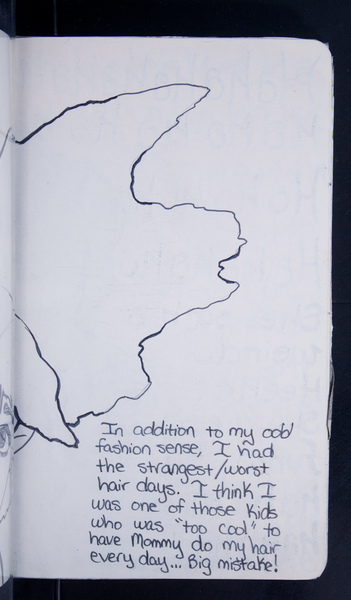 In addition to my odd
fashion sense, I had
the strangest/worst
hair days. I think I
was one of those kids
who was "too cool" to
have Mommy do my hair
every day... Big mistake!